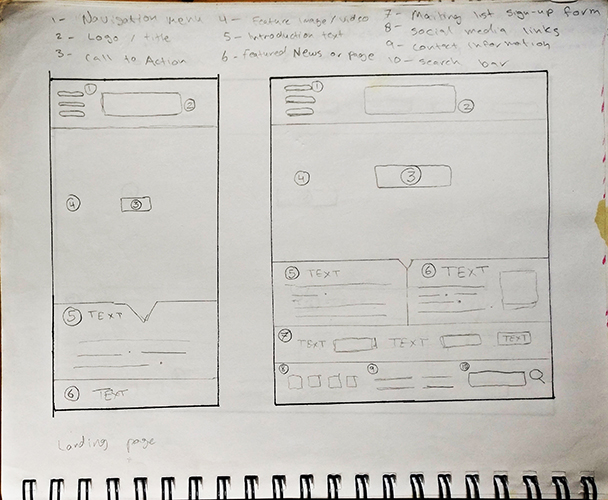 1- Navigation menu
2- Logo / title
3- Call to Action
4- Feature Image/video
5- Introduction text
6- featured News or page
7- Mailing list sign-up form
8- social media links
9- contact information
10- search bar
1
2
4
3
5 TEXT
6 TEXT
1
2
4
3
5 TEXT
6 TEXT
7 TEXT TEXT TEXT
8 9 10
Landing page